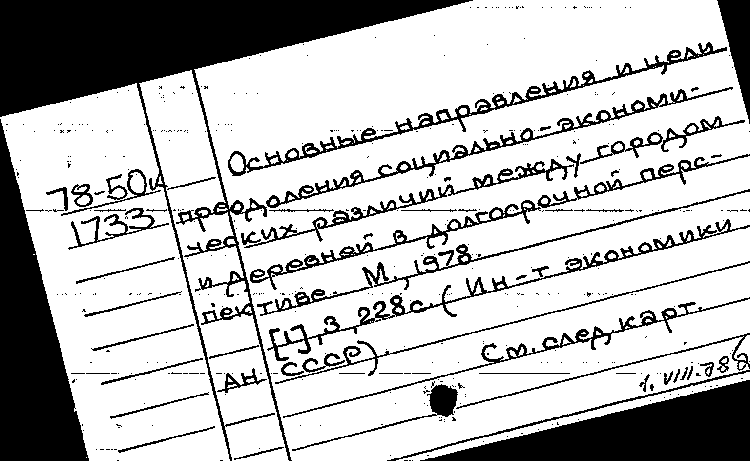 Основные направления и цели
78-50к преодоления социально-экономи-
1733 ческих различий между городом
и деревней в долгосрочной перс-
пективе. М., 1978.
[1], 3, 228с. (Ин-т экономики
АН СССР).
См. след. карт.
1. VIII-78